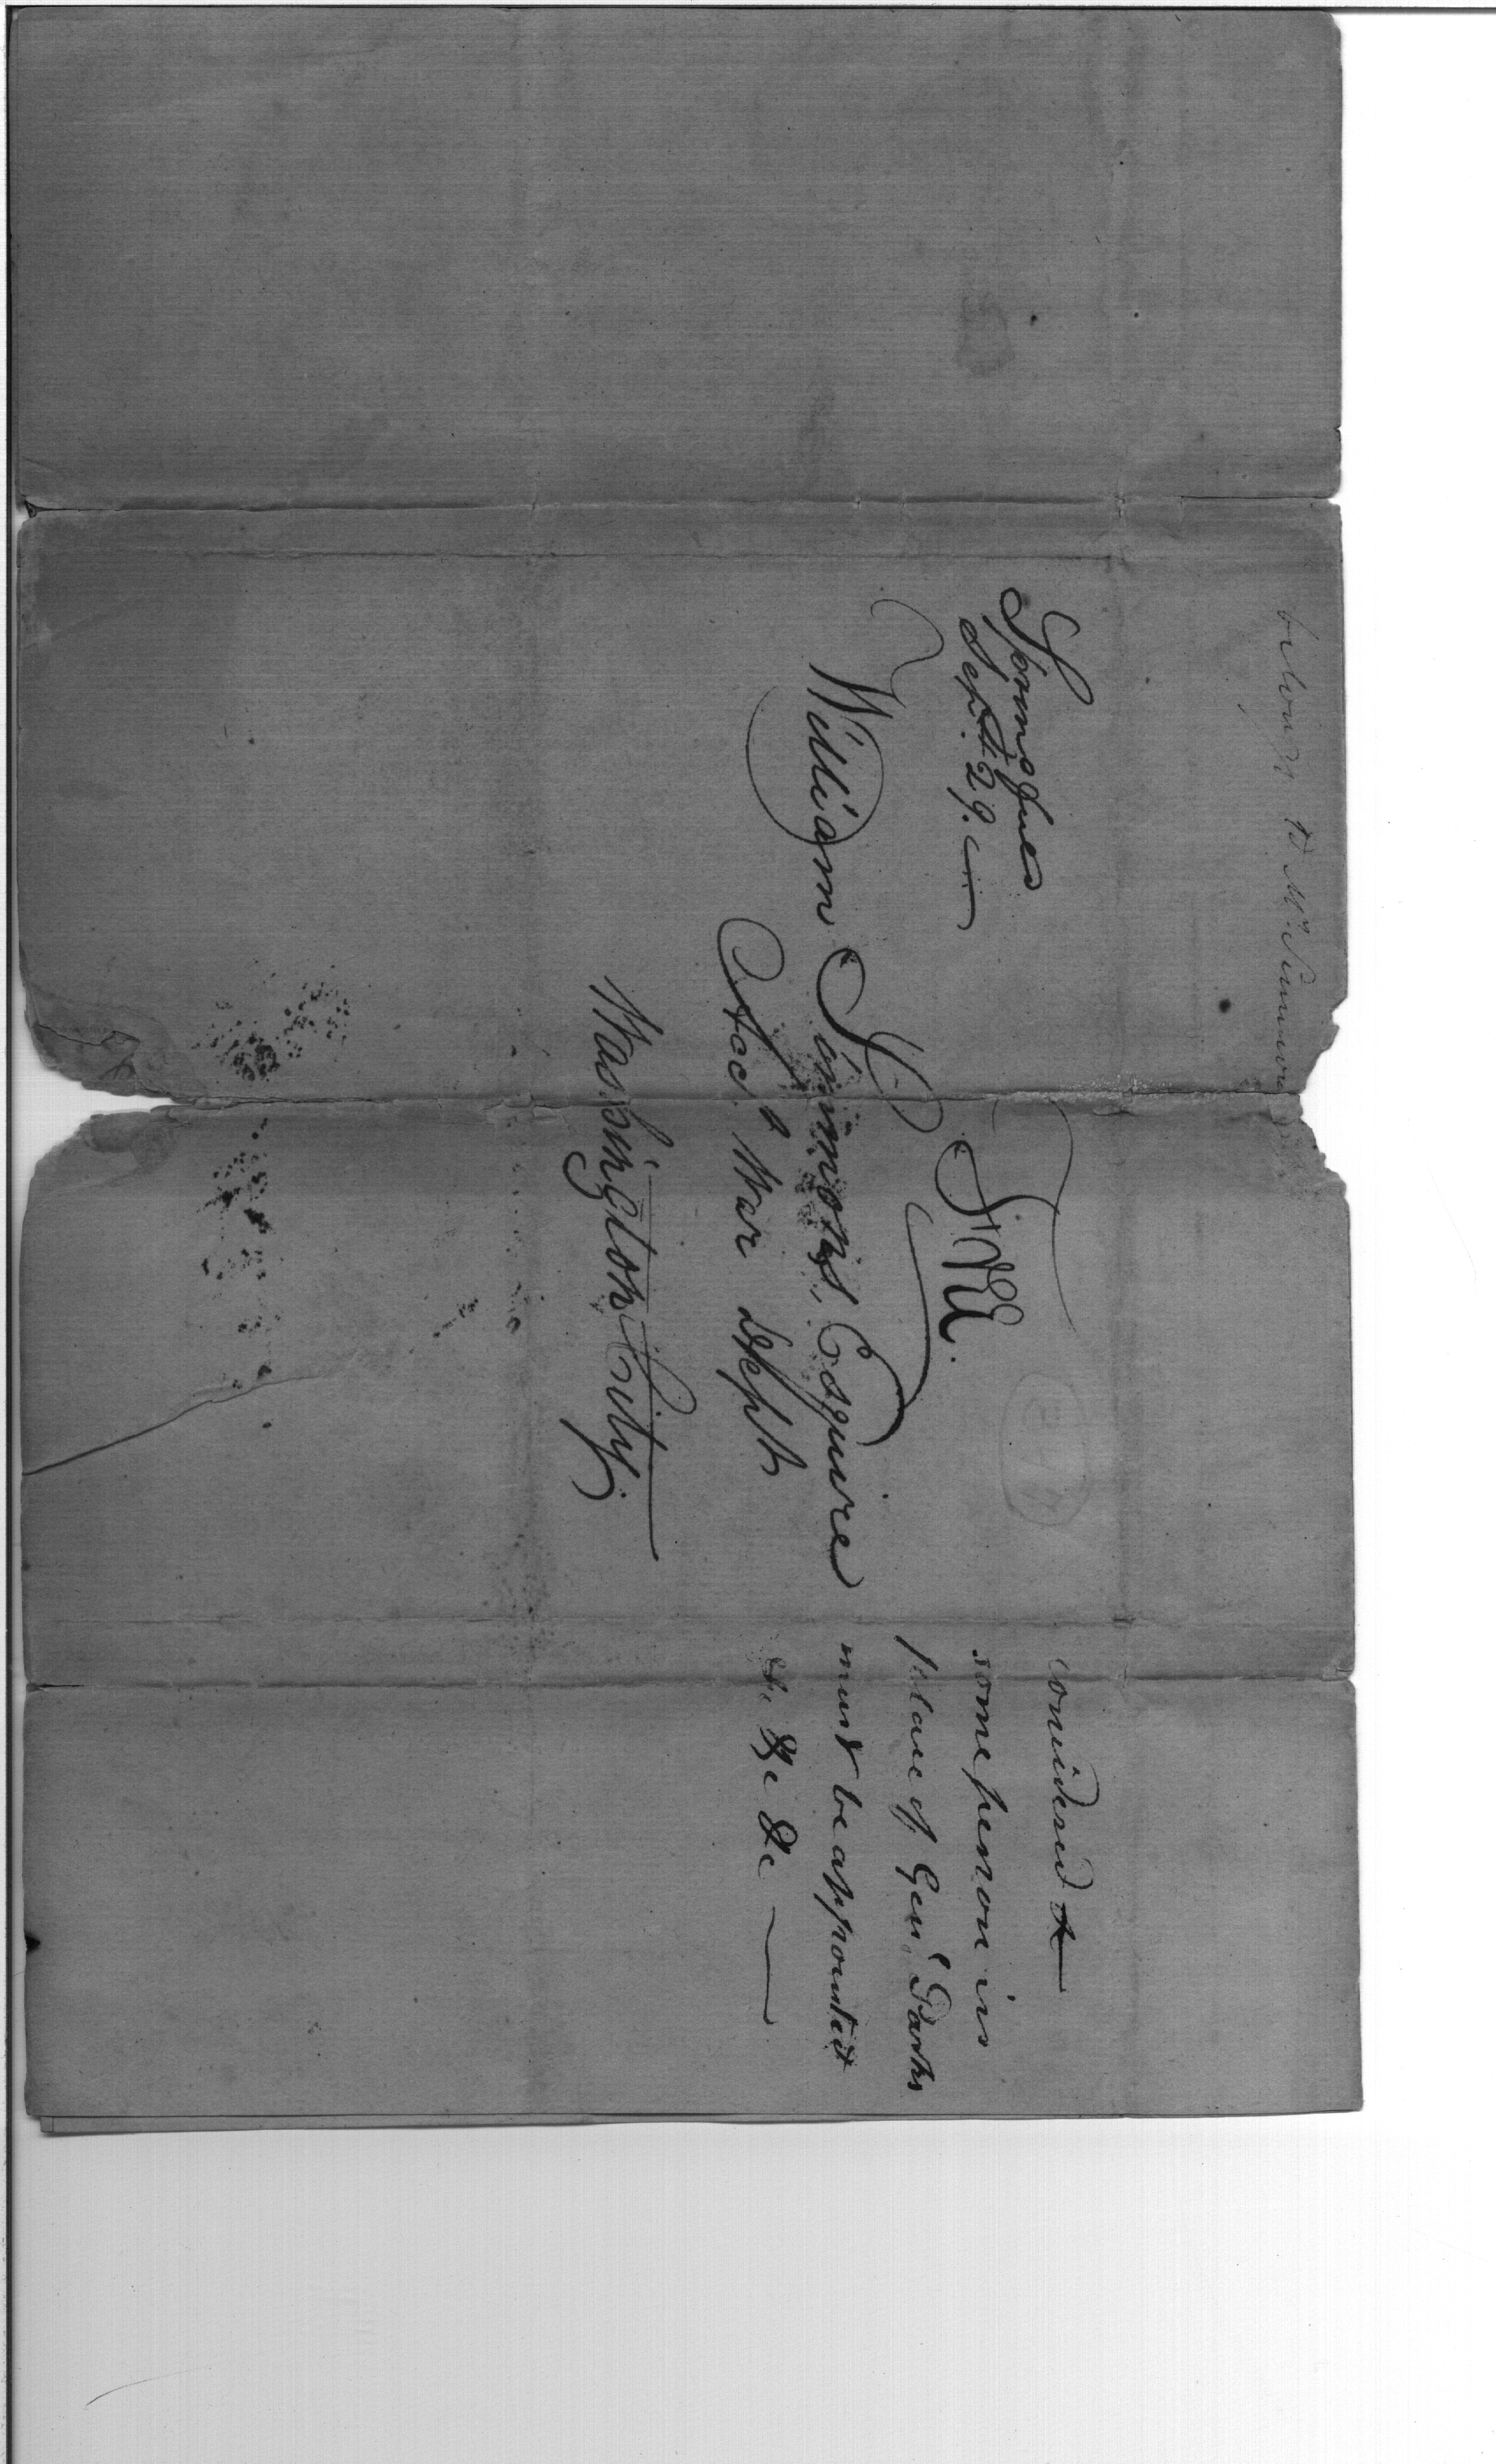 belongs to Mr Simmons
Springfield
Sept. 29.
FREE.
William Simmons, Esquire
Acct. War Dept
Washington City.
considered &
some person in
place of Genl. Parks
must be appointed
&c &c &c